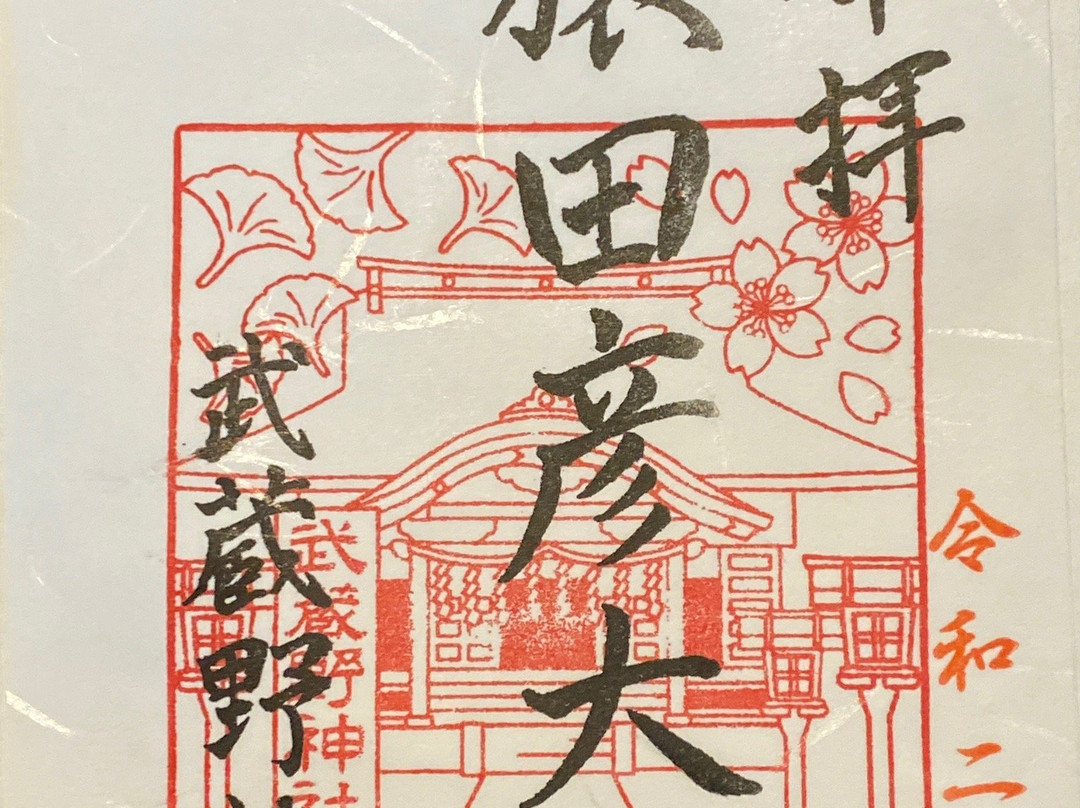 拝
令和二
猿田彦大
武蔵野
武蔵野神社